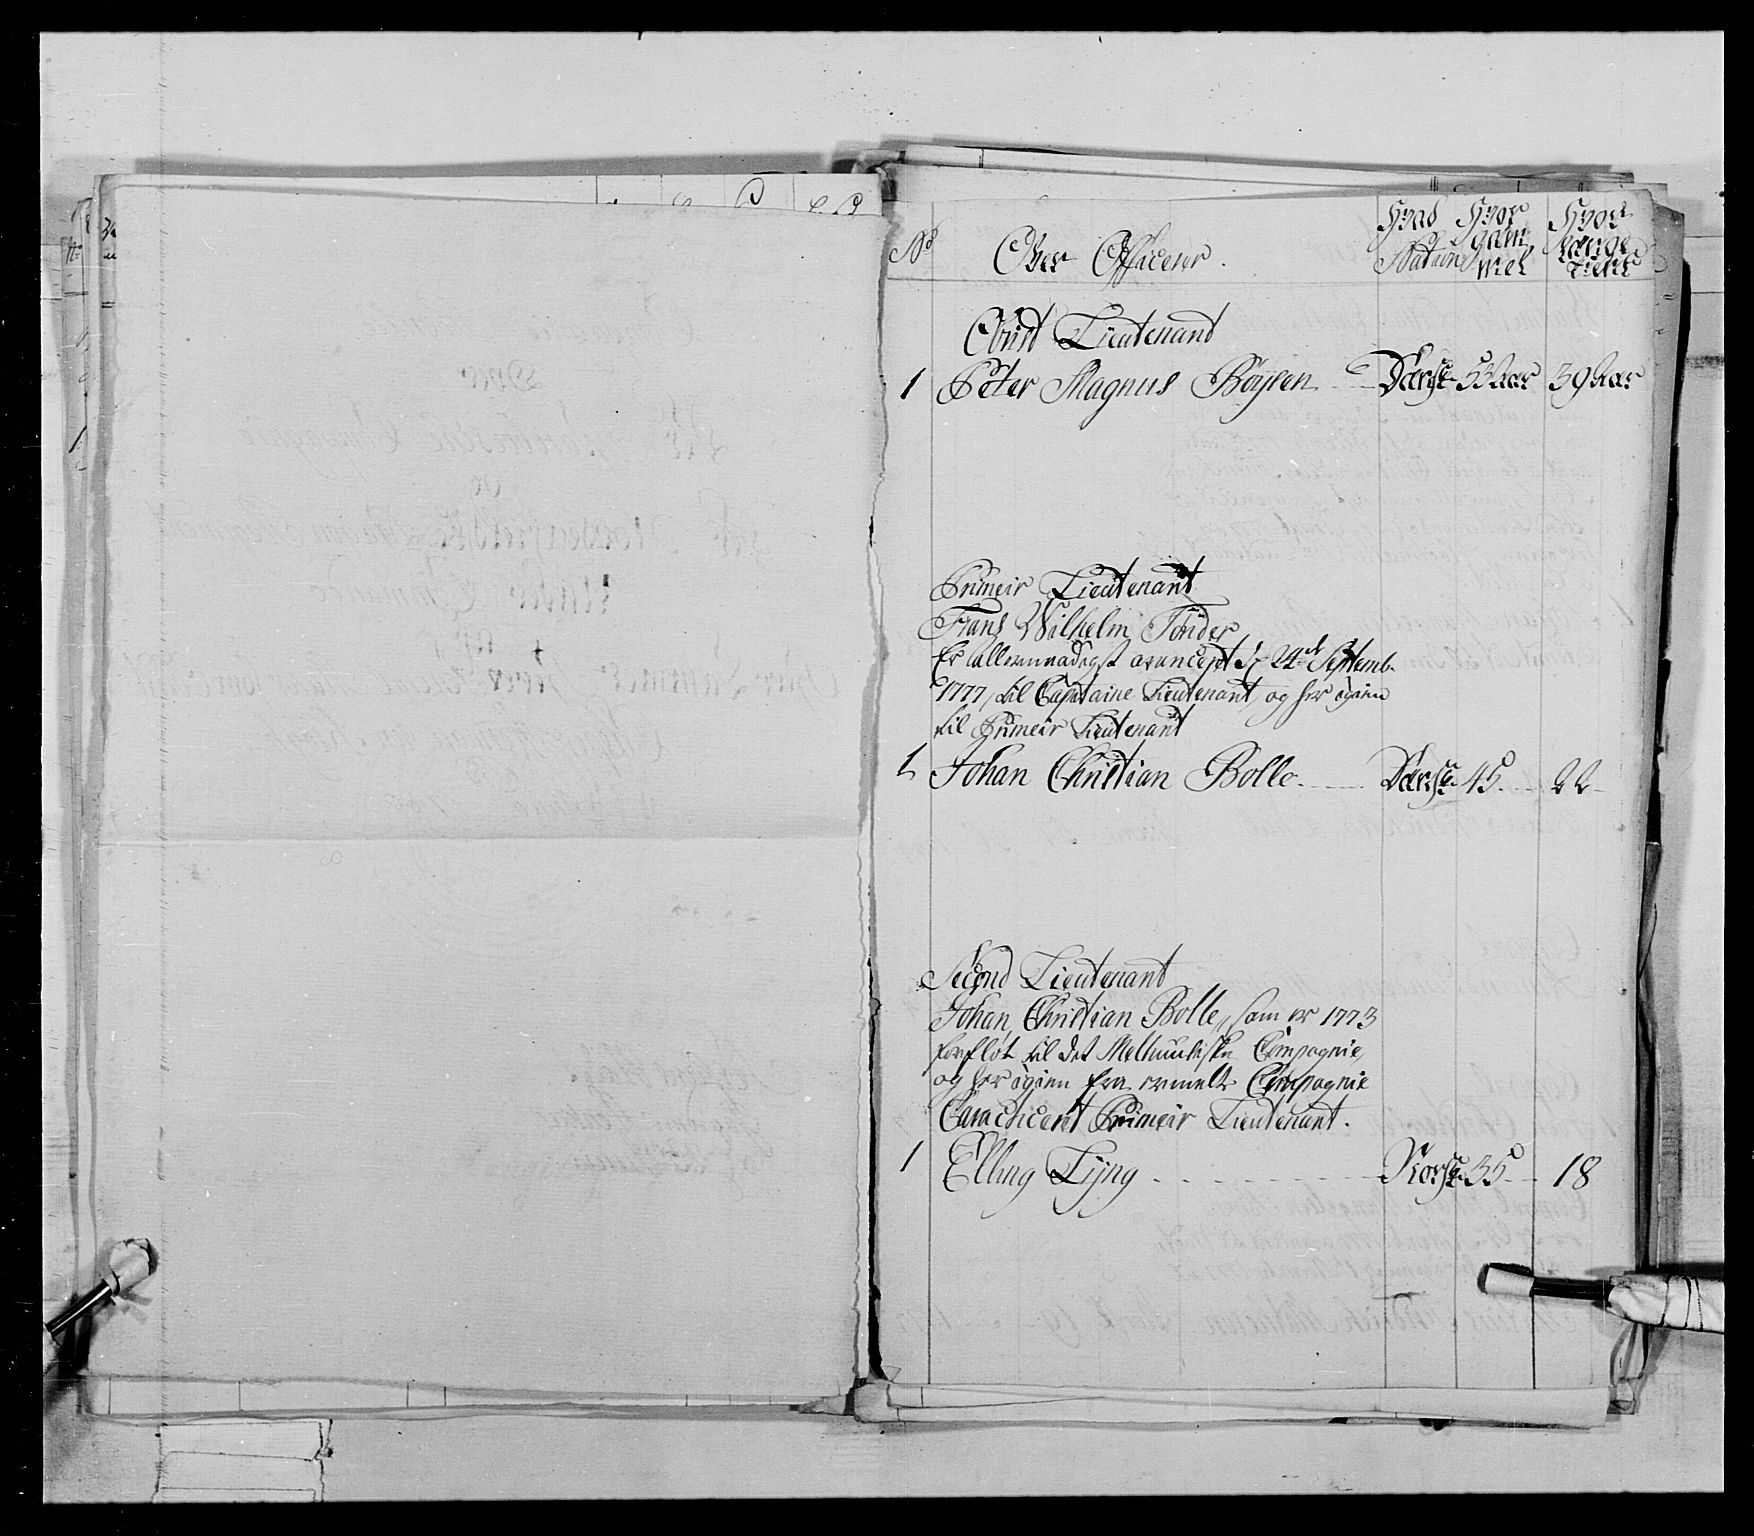 No
Over Officerer.
Hvad Nation
Hvor gam mel
Hvor længe tient
Obrist Lieutenant
1 Peter Magnus Boysen Dansk 53 Aar 39 Aar
Primeir Lieutenant
Frans Wilhelm Tönder
Er allernaadigst avancert d. 24de Septemb.
1777, til Capitaine Lieutenant, og her igien
til Primeir Lieutenant
1 Johan Christian Bolle. Dansk 45. 22
Second Lieutenant
Johan Christian Bolle, som er 1773
forfløt til det Compagnie,
og her igien fra ermelte Compagnie
Caracticert Primeir Lieutenant.
1 Elling Lyng Norsk 35 18